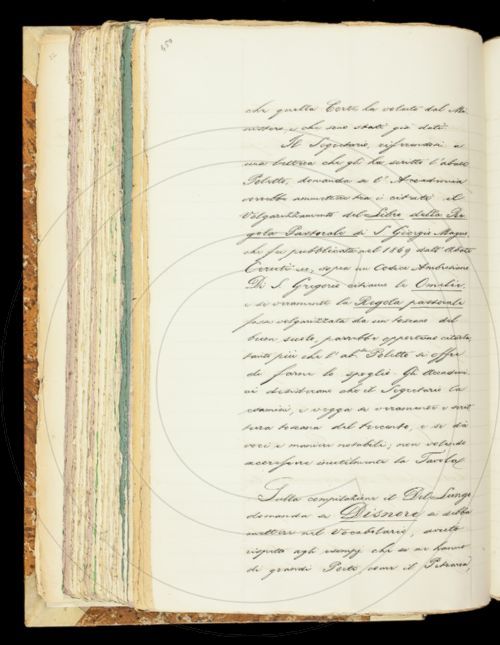 450
che quella Corte ha voluto dal Mi-
nistero, e che sono stati già dati.
Il Segretario, riferendosi a
una lettera che gli ha scritto l'abate
Poletto, domanda se l'Accademia
verrebbe ammettere tra i citati il
Volgarizzamento del Libro della Re-
gola Pastorale di S. Giorgio Magno,
che fu pubblicato nel 1869 dall'Abate
Ceruti sopra un Codice Ambrosiano
Di S. Grigorio citiamo le Omelie,
e se veramente la Regola pastorale
fosse volgarizzata da un toscano del
buon secolo, parrebbe opportuno citarla,
tanto più che l'ab. Poletto si offre
di farne lo spoglio. Gli Accademi-
ci desiderano che il Segretario la
esamini, e vegga se veramente è scrit-
tura toscana del trecento, e se dà
voci e maniere notabili; non volendo
accrescere inutilmente la Tavola.
Sulla compilazione il Del-Lungo
domanda se Disnore si debba
mettere nel Vocabolario, avuto
rispetto agli esempj che se ne hanno
di grandi Poeti, come il Petrarca,